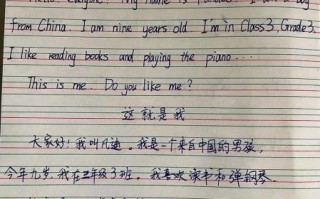 Hello, everyone! My name is a boy
from China. I am nine years old. I'm in Class 3, Grade 3.
I like reading books and playing the piano...
This is me. Do you like me?
这就是我
大家好！我叫凡迪。我是一个来自中国的男孩，
今年九岁，我在三年级3班。我喜欢读书和弹钢琴